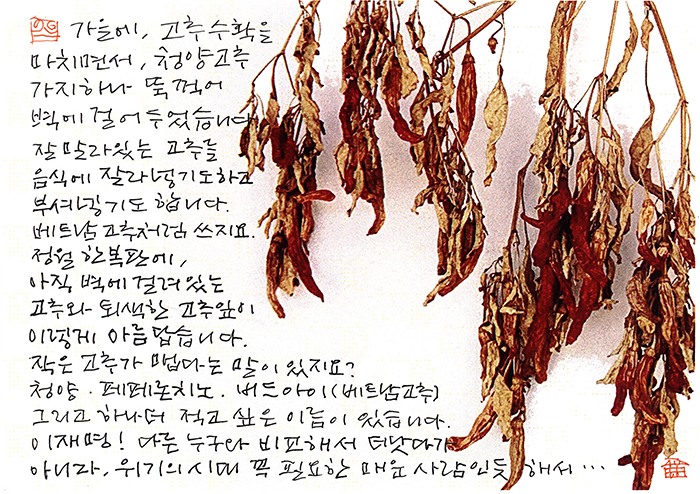 가을에, 고추수확을
마치면서, 청양고추
가지하나 뚝꺽어
벽에 걸어 두었습니다
잘 말라있는 고추를
음식에 잘라넣기도하고
부셔넣기도 합니다.
베트남고추처럼 쓰지요.
정월 한복판에,
아직 벽에 걸려있는
고추와 퇴색한 고추잎이
이렇게 아름답습니다.
작은 고추가 맵다는 말이 있지요?
청양 · 페페론치노 · 버드아이(베트남고추)
그리고 하나더 적고 싶은 이름이 있습니다.
이재명! 다른 누구와 비교해서 더낫다가
아니라, 위기의시대 꼭 필요한 매운 사람인듯 해서 …